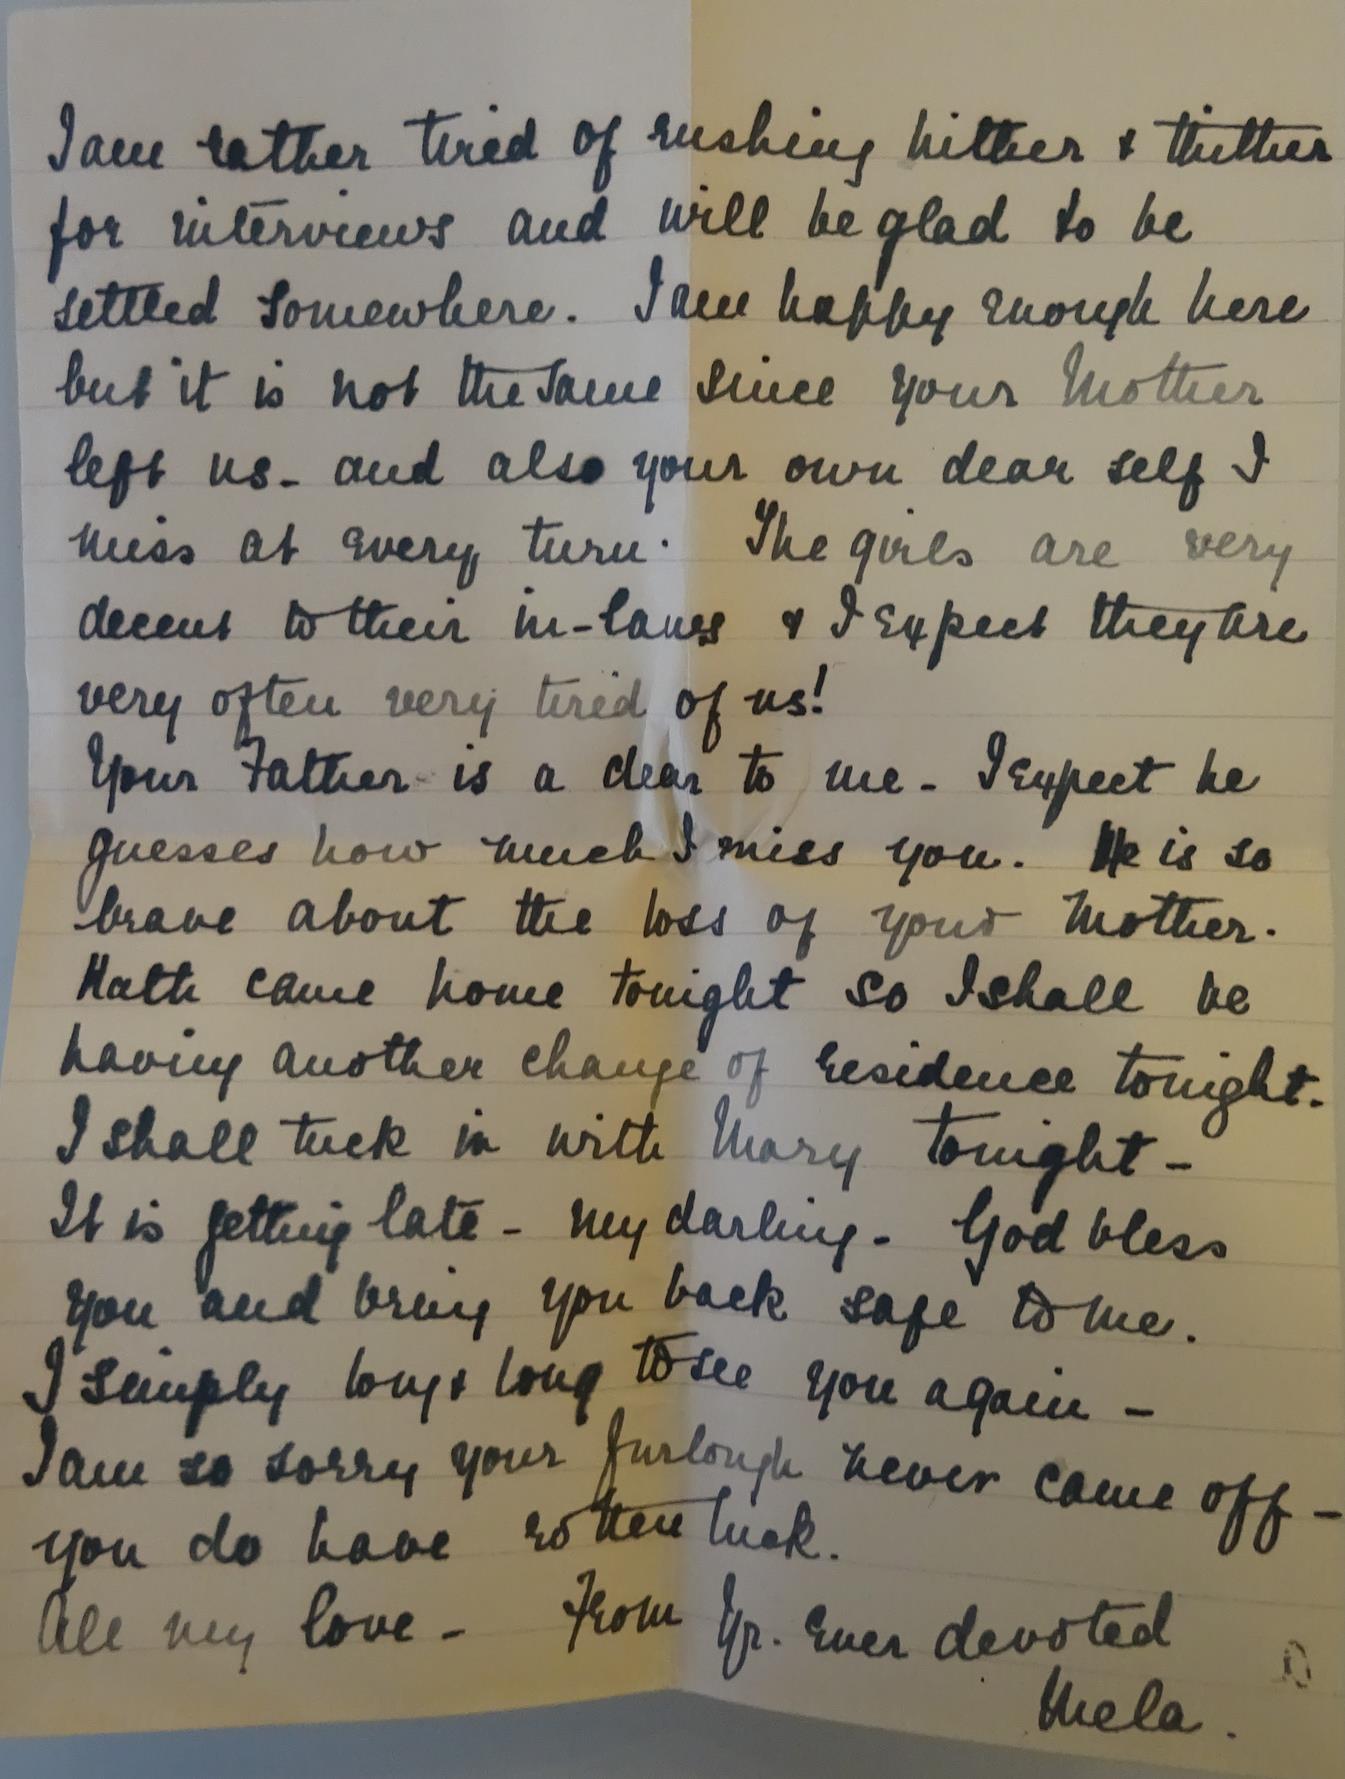 I am rather tired of rushing hither & thither
for interviews and will be glad to be
settled somewhere. I am happy enough here
but it is not the same since your Mother
left us - and also your own dear self I
miss at every turn. The girls are very
decent to their in-laws & I expect they are
very often very tired of us!
Your Father is a dear to me - I expect he
guesses how much I miss you. He is so
brave about the loss of your Mother.
Kath came home tonight so I shall be
having another change of residence tonight.
I shall tuck in with Mary tonight -
It is getting late - my darling - God bless
you and bring you back safe to me.
I simply long & long to see you again -
I am so sorry your furlough never came off -
you do have rotten luck.
All my love - From Yr. ever devoted
Mela.